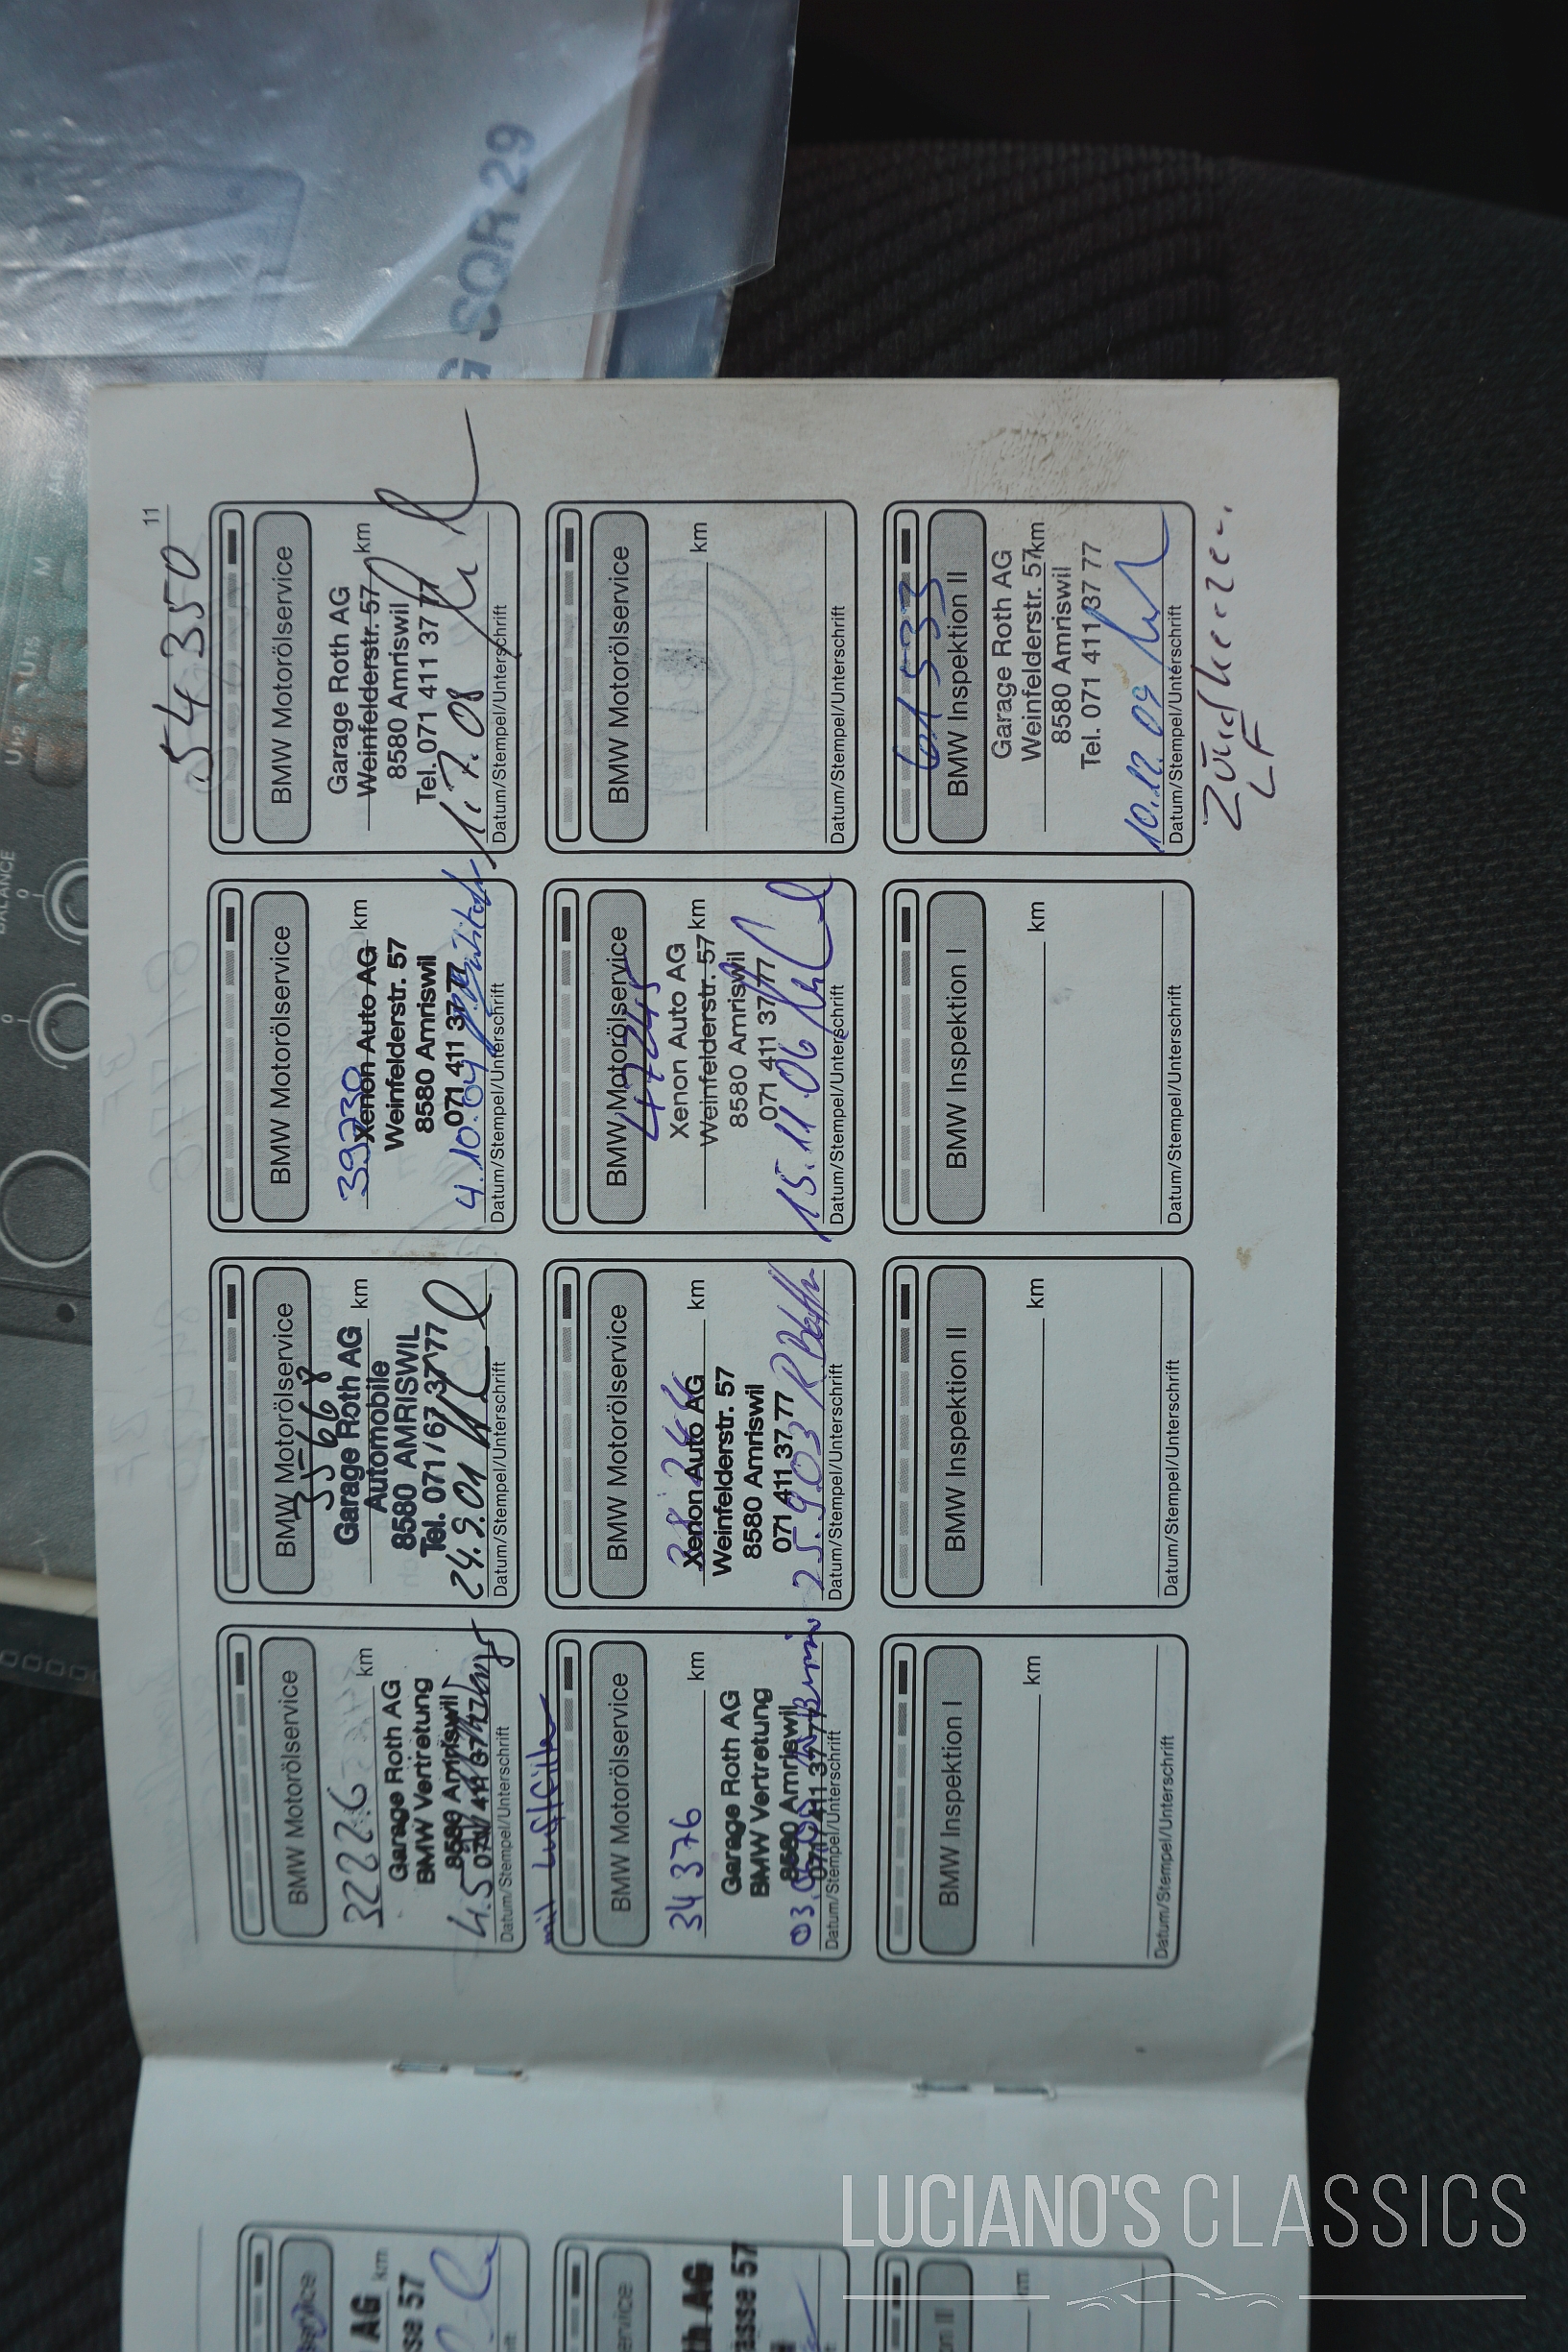 G SQR 29
BALANCE
0
0
M
11
54350
BMW Motorölservice
32226
km
Garage Roth AG
BMW Vertretung
8580 Amriswil
071/ 411 37 77
Datum/Stempel/Unterschrift
BMW Motorölservice
35668
km
Garage Roth AG
Automobile
8580 AMRISWIL
Tel. 071/67 37 77
24.9.01
Datum/Stempel/Unterschrift
BMW Motorölservice
39730
km
Xenon Auto AG
Weinfelderstr. 57
8580 Amriswil
071 411 37 77
4.10.04
Datum/Stempel/Unterschrift
BMW Motorölservice
Garage Roth AG
Weinfelderstr. 57
km
8580 Amriswil
Tel. 071 411 37 77
1.7.08
Datum/Stempel/Unterschrift
mit Luftfilter
BMW Motorölservice
34376
km
Garage Roth AG
BMW Vertretung
8580 Amriswil
071/ 411 37 77
Datum/Stempel/Unterschrift
BMW Motorölservice
km
Xenon Auto AG
Weinfelderstr. 57
8580 Amriswil
071 411 37 77
25.9.03
Datum/Stempel/Unterschrift
BMW Motorölservice
47245
Xenon Auto AG
Weinfelderstr. 57
km
8580 Amriswil
071 411 37 77
15.11.06
Datum/Stempel/Unterschrift
BMW Motorölservice
km
Datum/Stempel/Unterschrift
BMW Inspektion I
km
Datum/Stempel/Unterschrift
BMW Inspektion II
km
Datum/Stempel/Unterschrift
BMW Inspektion I
km
Datum/Stempel/Unterschrift
61533
BMW Inspektion II
Garage Roth AG
Weinfelderstr. 57
km
8580 Amriswil
Tel. 071 411 37 77
10.12.09
Datum/Stempel/Unterschrift
Zündkerzen
LF
AG
km
se 57
ervice
th AG
asse 57
LUCIANO'S CLASSICS